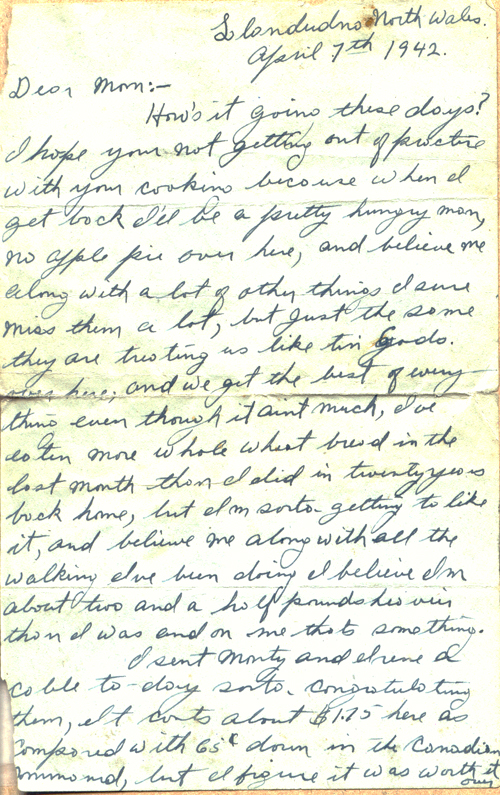 Llandudno North Wales.
April 7th 1942.
Dear Mom:-
How's it going these days?
I hope your not getting out of practice
with your cooking because when I
get back I'll be a pretty hungry man,
no apple pie over here, and believe me
along with a lot of other things I sure
miss them a lot, but just the same
they are treating us like tin Gods.
over here; and we get the best of every
thing even though it aint much, I've
eaten more whole wheat bread in the
last month than I did in twenty years
back home, but I'm sorta getting to like
it, and believe me along with all the
walking I've been doing I believe I'm
about two and a half pounds heavier
than I was and on me thats something.
I sent Monty and Irene a
cable to-day sorta congratulating
them, It costs about $1.75 here as
compared with 65¢ down in the Canadian
Command, but I figure it was worth it
over